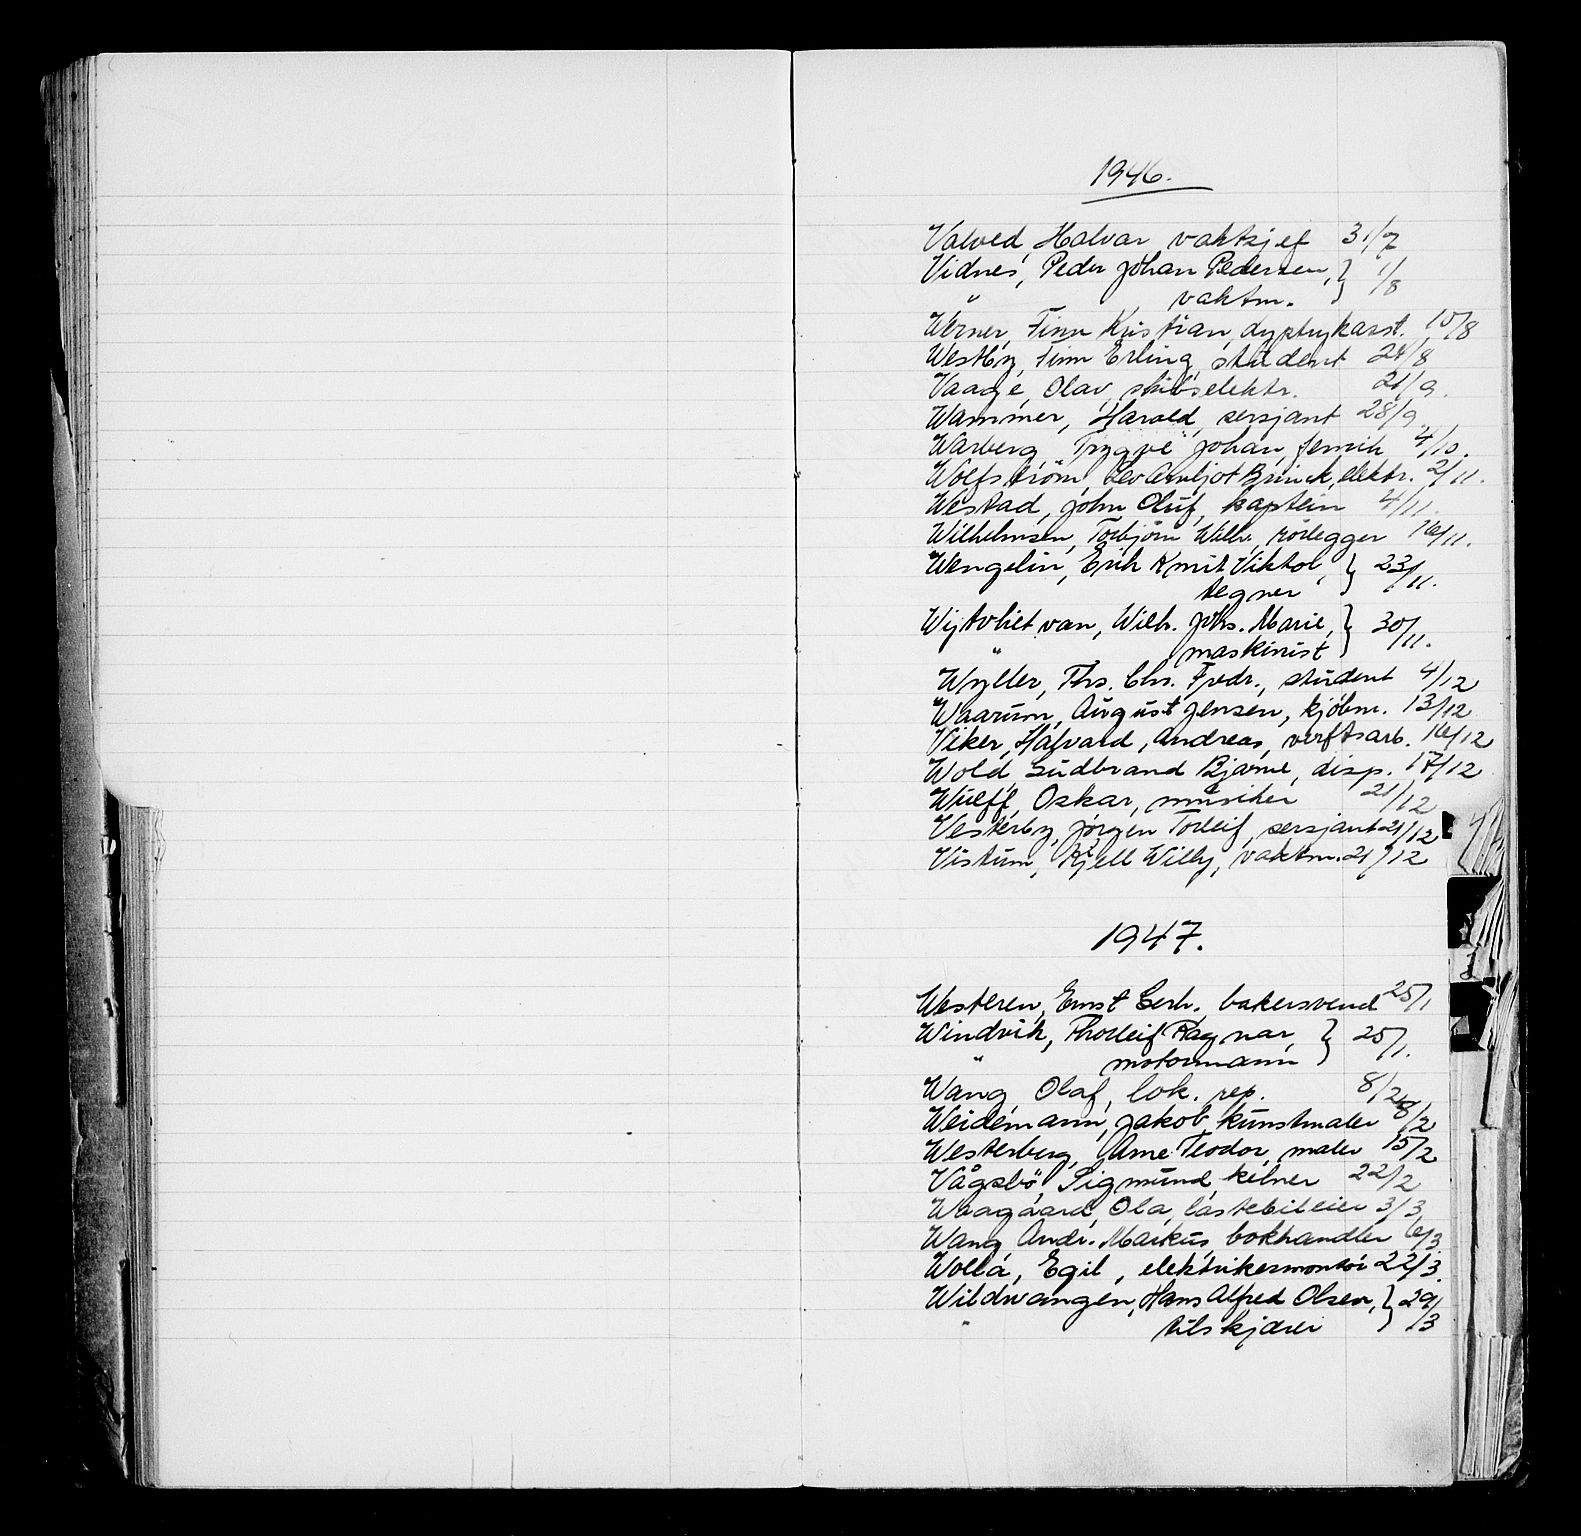 1946.
Valved, Halvar vaktsjef 31/7
Vidnes, Peder Johan Pedersen, } 1/8
" vaktm.
Werner, Finn Kristian, dyptrykasst. 10/8
Westby, Finn Erling, student 24/8
Vaage, Olav, skibselektr. 21/9.
Wammer, Harald, sersjant 28/9
Warberg, Trygve Johan, fenrik 4/10.
Wolfström, Leo Arnljot Brinck, elektr. 2/11.
Westad, John Oluf, kaptein 4/11.
Wilhelmsen, Torbjörn Wilh. rörlegger 16/11.
Wengelin, Erik Knut Viktor, } 23/11.
tegner
Wijtvliet van, Wilh. Johs. Marie, } 30/11.
" maskinist
Wyller, Ths. Chr. Fredr., student 4/12
Waarum, August Jensen, kjöbm. 13/12
Viker, Halvard, Andreas, verftsarb. 16/12
Wold, Gudbrand Bjarne, disp. 17/12
Wulff, Oskar, musiker 21/12
Vesterby, Jörgen Torleif, sersjant 21/12
Vistum, Kjell Willy, vaktm. 21/12
1947.
Westeren, Ernst Gerh. bakersvend 25/1
Windvik, Thorleif Ragnar, } 25/1.
" motormann
Wang, Olaf, lok. rep. 8/2
Weidemann, Jakob, kunstmaler 8/2
Westerberg, Arne Teodor, maler 15/2
Vågsbö, Sigmund, kelner 22/2
Waagaard, Ola, lastebileier 3/3
Wang, Andr. Markus, bokhandler 6/3
Wollá, Egil, elektrikermontör 22/3.
Wildwangen, Hans Alfred Olsen, } 29/3
" tilskjærer